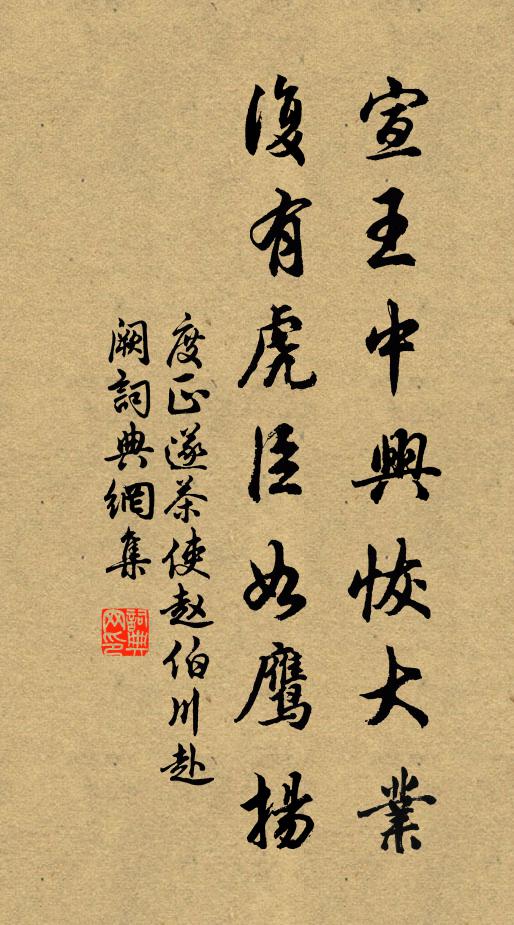 宣王中興恢大業
復有虎臣如鷹揚
度正送茶使赵伯川赴
闕詞典網集
詞典网印